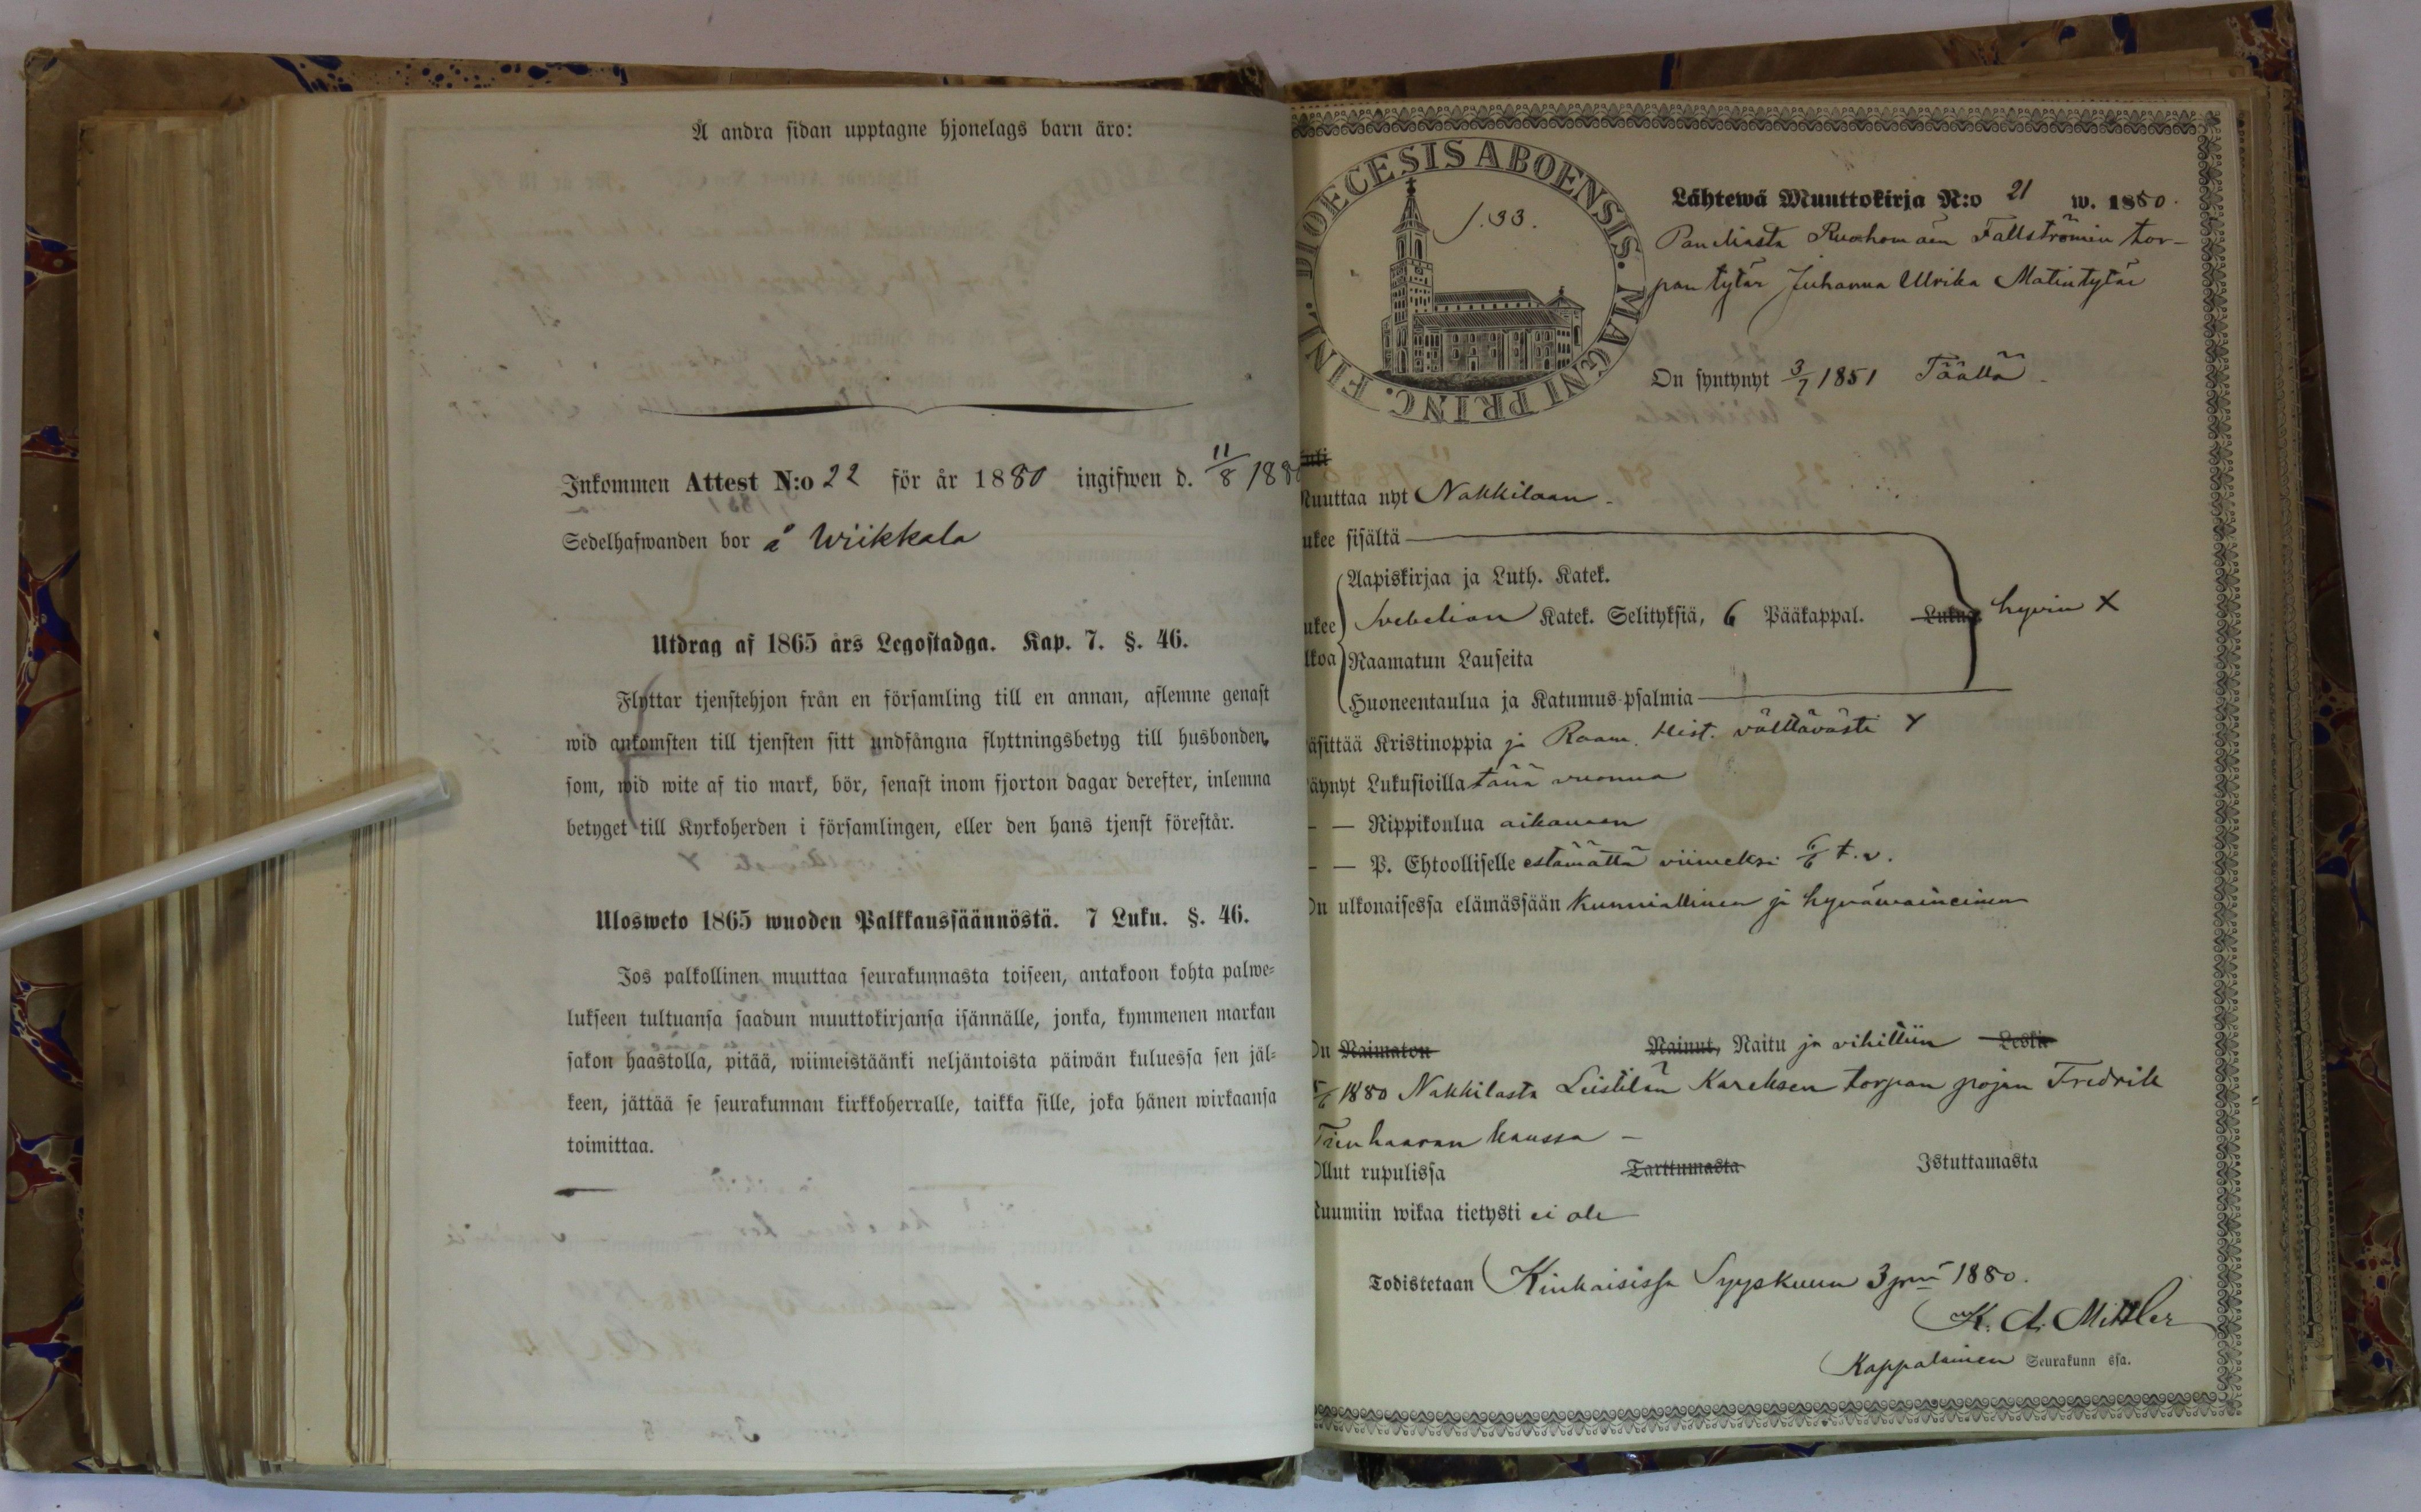 Å andra sidan upptagne hjonelags barn äro:
Inkommen Attest N:o 22 för år 1880 ingifwen d. 11/8 188
Sedelhafwanden bor å Wiikkala
Utdrag af 1865 års Legostadga. Kap. 7. §. 46.
Flyttar tjenstehjon från en församling till en annan, aflemne genast
wid ankomsten till tjensten sitt undfångna flyttningsbetyg till husbonden,
som, wid wite af tio mark, bör, senast inom fjorton dagar derefter, inlemna
betyget till Kyrkoherden i församlingen, eller den hans tjenst förestår.
Ulosweto 1865 wuoden Palkkaussäännöstä. 7 Luku. §. 46.
Jos palkollinen muuttaa seurakunnasta toiseen, antakoon kohta palwe=
lukseen tultuansa saadun muuttokirjansa isännälle, jonka, kymmenen markan
sakon haastolla, pitää, wiimeistäänki neljäntoista päiwän kuluessa sen jäl=
keen, jättää se seurakunnan kirkkoherralle, taikka sille, joka hänen wirkaansa
toimittaa.
DIOECESIS ABOENSIS. MAGNI PRINC. FINL.
s. 33.
Lähtewä Muuttokirja N:o 21 w. 1880.
Paneliasta Ruohomäen Fallströmin tor-
pan tytär Juhanna Ulrika Matintytär
On syntynyt 3/7 1851 Täällä
Muuttaa nyt Nakkilaan.
ukee sisältä
Aapiskirjaa ja Luth. Katek.
ukee Svebelion Katek. Selityksiä, 6 Pääkappal. hyvin X
lkoa Raamatun Lauseita
Huoneentaulua ja Katumus-psalmia
äsittää Kristinoppia ja Raam. Hist. välttävästi X
äynyt Lukusioilla tänä vuonna
— — Rippikoulua aikanaan
— — P. Ehtoolliselle estämättä viimeksi 6/6 t. v.
On ulkonaisessa elämässään kunniallinen ja hyvämaineinen
On Naimaton Nainut, Naitu ja vihittiin Leski
1880 Nakkilasta Leistilän Kareksen torpan pojan Fredrik
Tienhaaran kanssa —
Ollut rupulissa Tarttumasta Istuttamasta
Ruumiin wikaa tietysti ei ole
Todistetaan Kiukaisissa Syyskuun 3 pnä 1880.
K. A. Mittler
Kappalainen Seurakunn ssa.